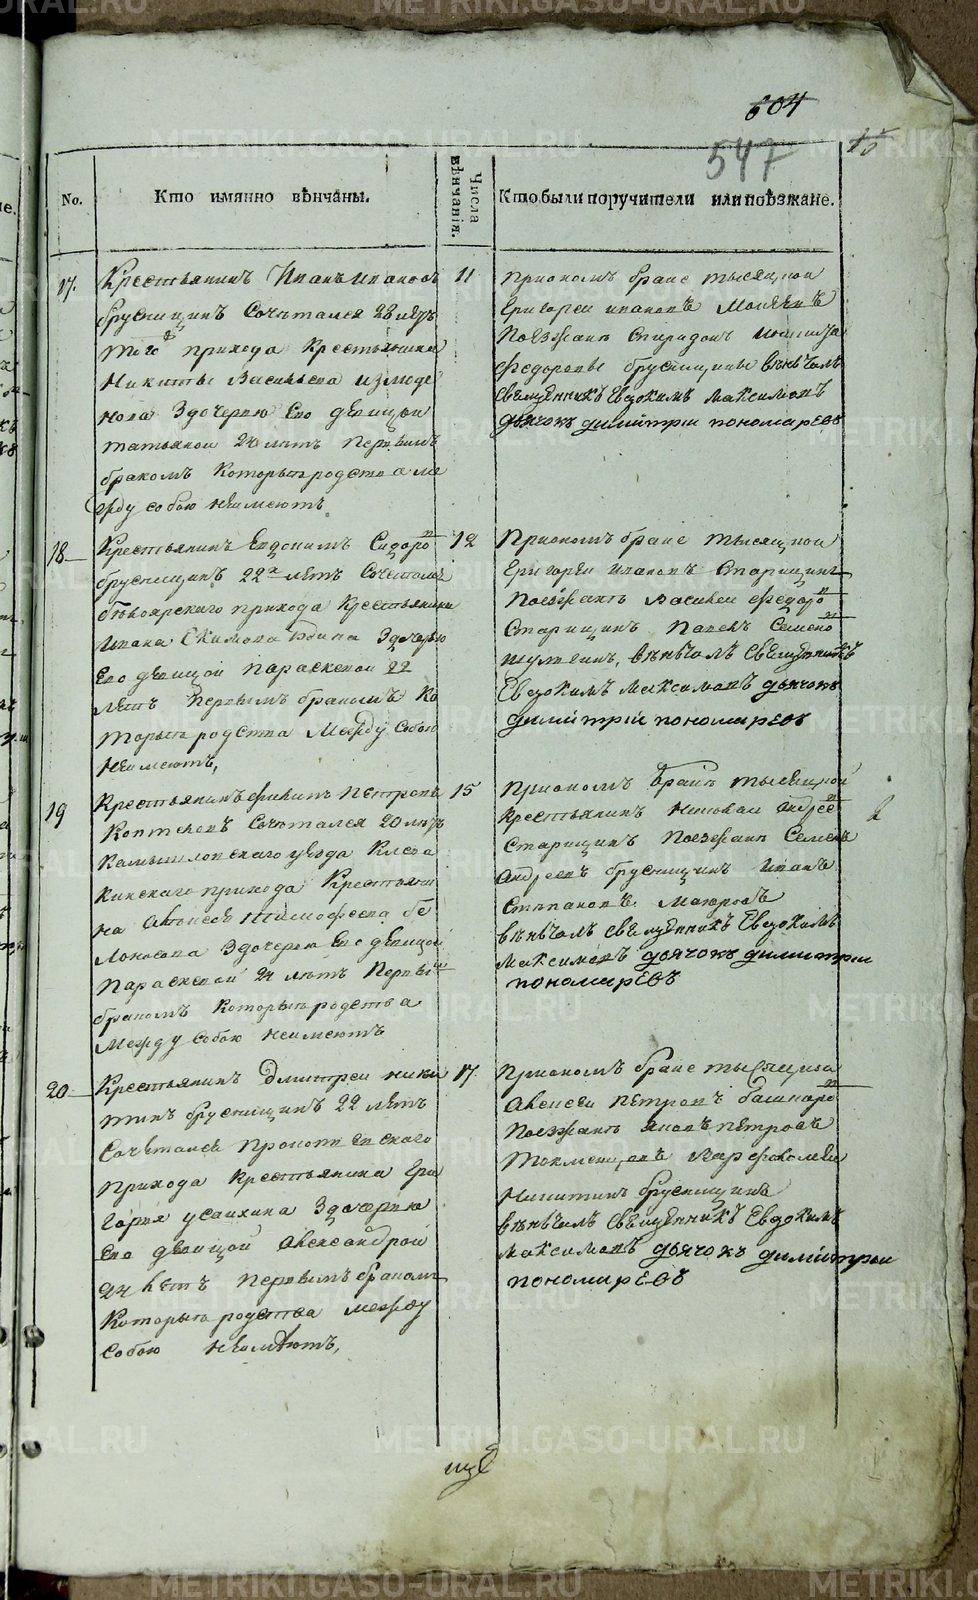 METRIKI.GASO-URAL.RU
604
547
15
No.
Кто имянно вѣнчаны.
Числа вѣнчанiя.
Кто были поручители или поѣзжане.
17.
Крестьянинъ Иванъ Ивановъ
брусницинъ Сочетался 28 летъ
того прихода крестьянина
Никиты Васильева
здочерью Его девицои
татьянои 24 летъ первымъ
бракомъ которыя родства ме
жду собою неимеютъ
11
Приономъ браке тысяцкои
Григореи ивановъ
Поезжанъ Спиридонъ
Федоровы брусницины венчалъ
Священникъ Евдокимъ Максимовъ
дьячокъ димитрiи пономаревъ
18
Крестьянинъ Евдокимъ Сидоро
брусницинъ 22х летъ Сочетался
прихода Крестьянина
Ивана Екимова здочерью
Его девицой Параскевой 22
летъ первымъ бракомъ ко
торыя родства Между Собою
неимеютъ,
12
Приономъ браке тысяцкои
Григореи ивановъ Старицинъ
Поезжанъ Василеи Федоро
Старицинъ Павелъ Семено
венчалъ Священникъ
Евдокимъ Максимовъ дьячокъ
димитрiй пономаревъ
19
Крестьянинъ Петровъ
Сочетался 20 летъ
Камышловскаго уезда
прихода Крестьяни
на Алексея тимофеева бе
лоносова Здочерью Его девицой
Параскевой 24 летъ Первы
бракомъ Которыя родства
Между Собою неимеютъ
15
Приономъ браке тысяцкой
крестьянинъ Николаи андрее
Старицинъ Поезжанъ Семенъ
Андреевъ брусницинъ Иванъ
Степановъ Маюровъ
венчалъ священникъ Евдокимъ
Максимовъ дьячокъ димитрiи
пономаревъ
20
Крестьянинъ Дмитреи ники
тинъ брусницинъ 22 летъ
Сочетался
прихода крестьянина Гри
горiя усанина Здочерью
Его девицой Александрой
24 летъ первымъ бракомъ
Которыя родства между
Собою неимѣютъ,
17
Приономъ браке тысяцкои
Алексеи петровъ башкаро
Поезжанъ Яковъ петровъ
Варфоломеи
Никитинъ брусницинъ
венчалъ Священникъ Евдокимъ
Максимовъ дьячокъ димитрiи
пономаревъ